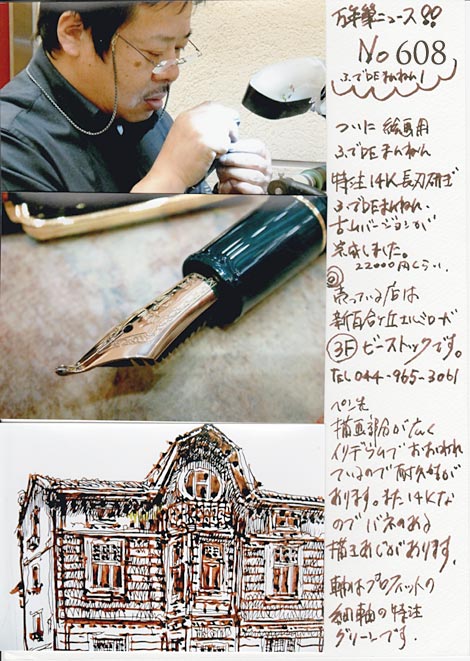 万年筆ニュース!!
No 608
ふでDEまんねん!
ついに 絵画用
ふでDEまんねん
特注14K長刀研ぎ
ふでDEまんねん。
古山バージョンが
完成しました。
22000円くらい。
売っている店は
新百合ヶ丘エルミロード
3F ビーストックです。
TEL 044-965-3061
ペン先
描画部分が広く
イリヂウムでおおわれ
ているので耐久性が
あります。また14Kな
のでバネのある
描きあじがあります。
軸はプロフィットの
細軸の特注
グリーンです。